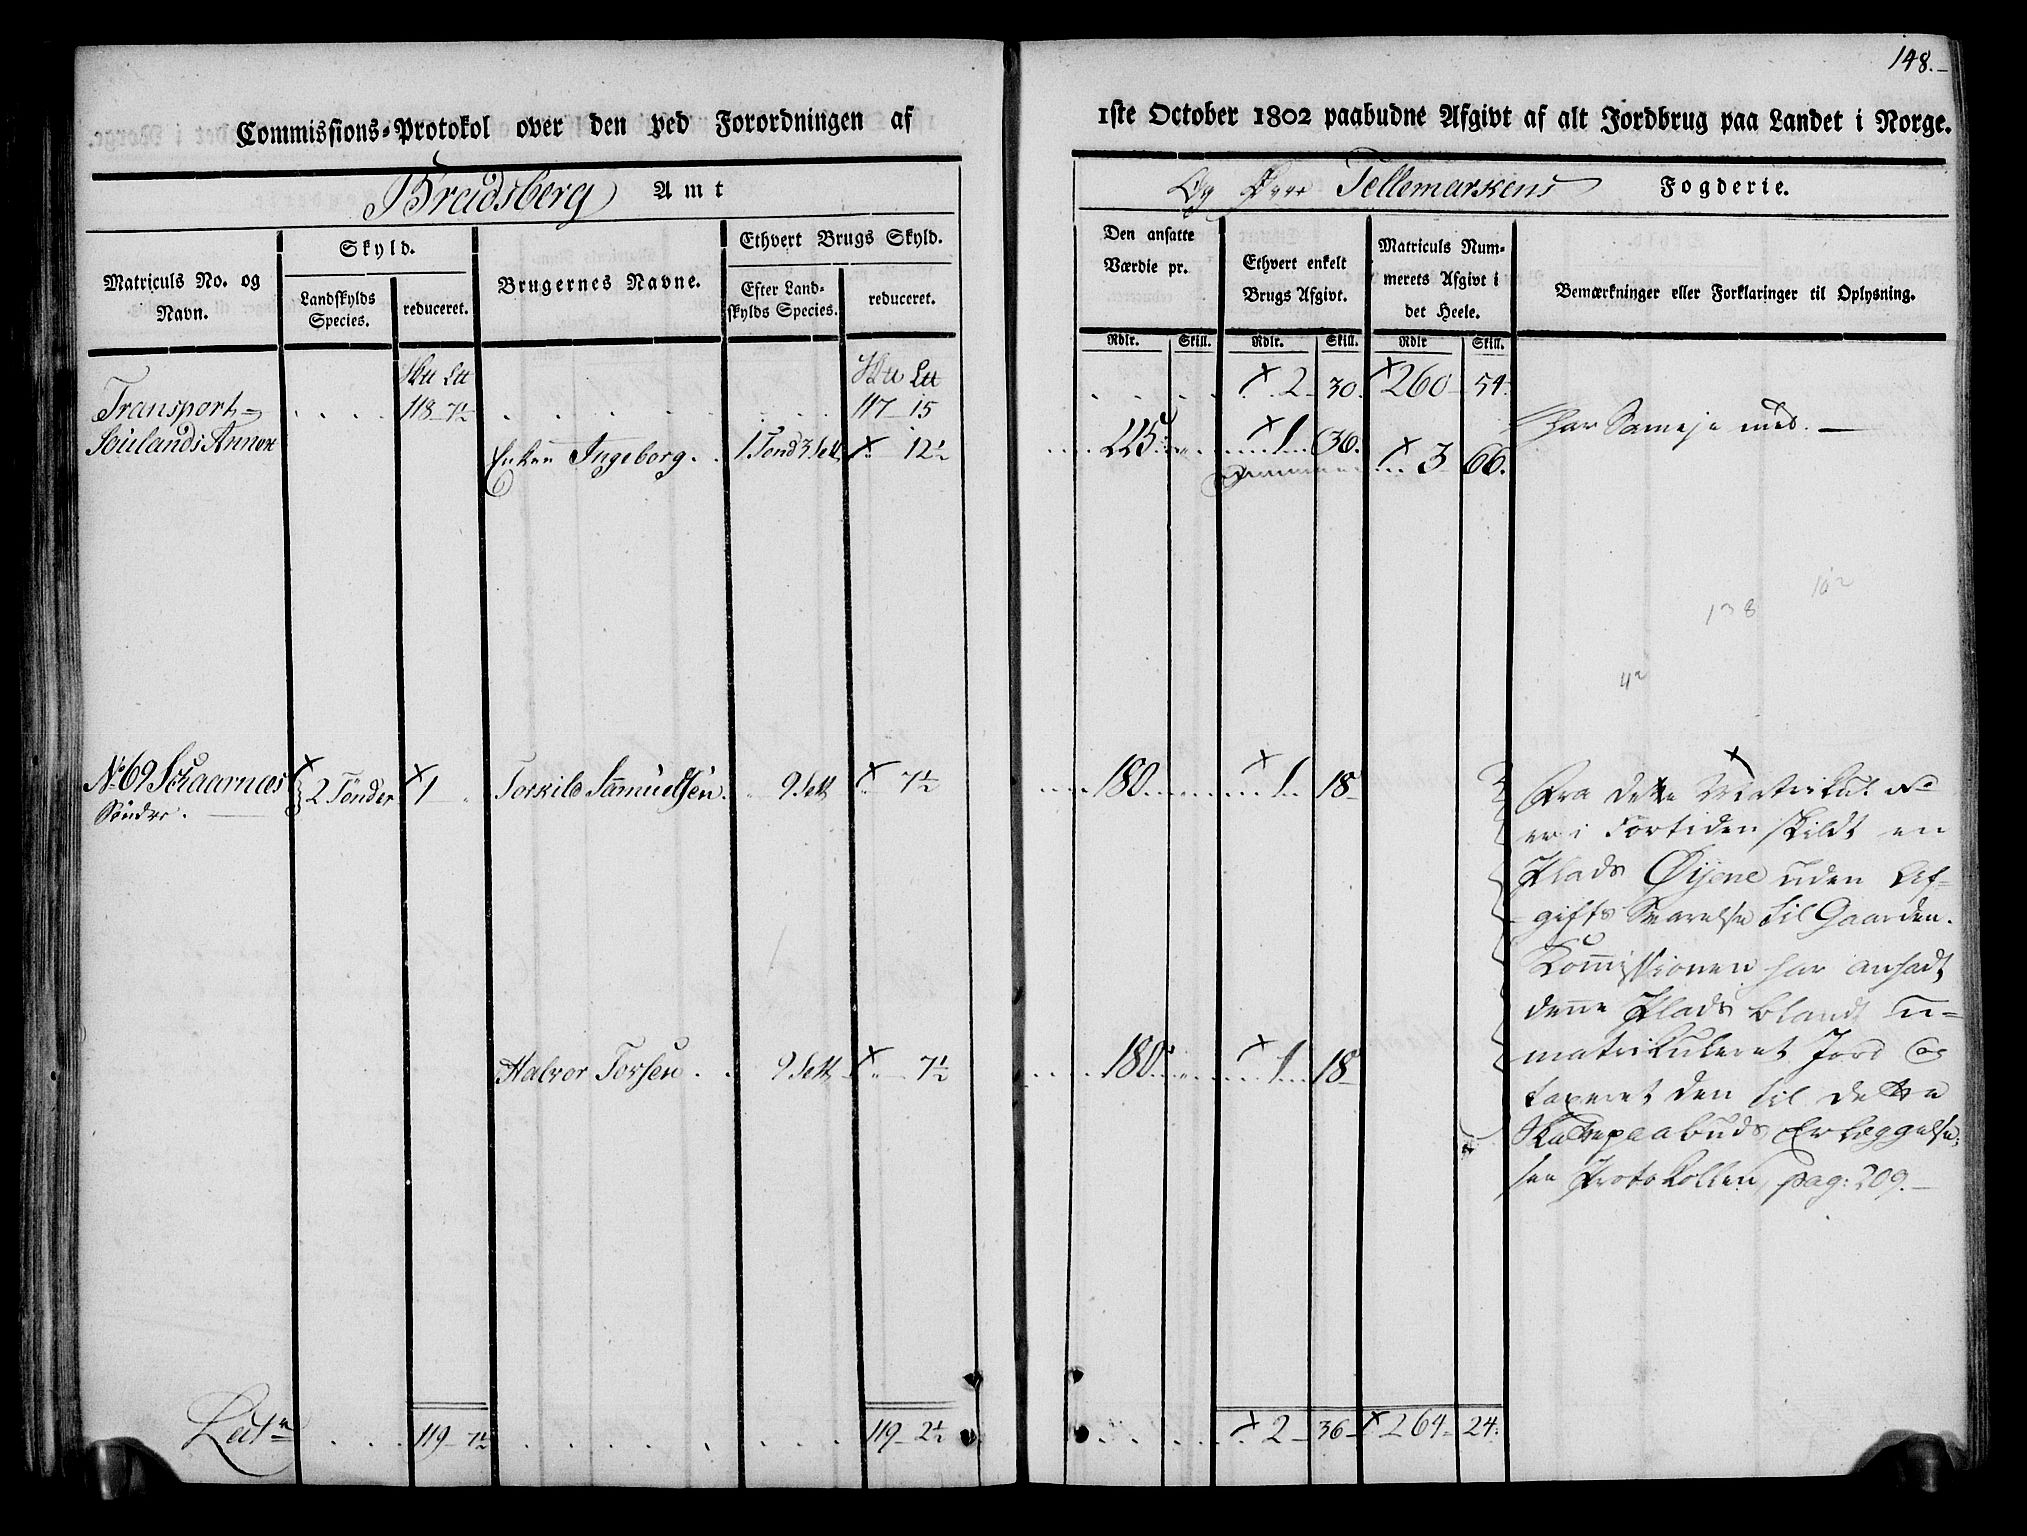 148.
Commissions-Protokol over den ved Forordningen af
1ste October 1802 paabudne Afgivt af alt Jordbrug paa Landet i Norge.
Bradsberg Amt
Og Øvre Tellemarkens Fogderie.
Matriculs No. og Navn.
Skyld.
Landskylds Species.
reduceret.
Brugernes Navne.
Ethvert Brugs Skyld.
Efter Landskylds Species.
reduceret.
Den ansatte Værdie pr.
Ethvert enkelt Brugs Afgivt.
Matriculs Nummerets Afgivt i det Heele.
Bemærkninger eller Forklaringer til Oplysning.
Rdlr. Skill. Rdlr. Skill. Rdlr Skill.
Transport 118 - 7½ 117 - 15 2 30. 260 54.
Enken Ingeborg. 1 Tønd 3 Sett 12½ 225 1 36. 3 66. Har Sameje med.
138
42
No 69 Schaarnæs 2 Tønder 1 Torkild Samuelsen. 9 Sett 7½ 180 1 18
Søndre.
Fra dette Matrikul No
er i Fortiden skildt en
Plads Øijene uden Af-
gifts Svarelse til Gaarden.
Kommissionen har ansadt
denne Plads blandt u-
matrikuleret Jord og
taxeret den til dette
Skattepaabuds Erlæggelse,
see Protokollen, pag: 209.
Halvor Torsen 9 Sett 7½ 180 1 18
Lat. 119 - 7½ 119 - 2½ 2 36 264 24.